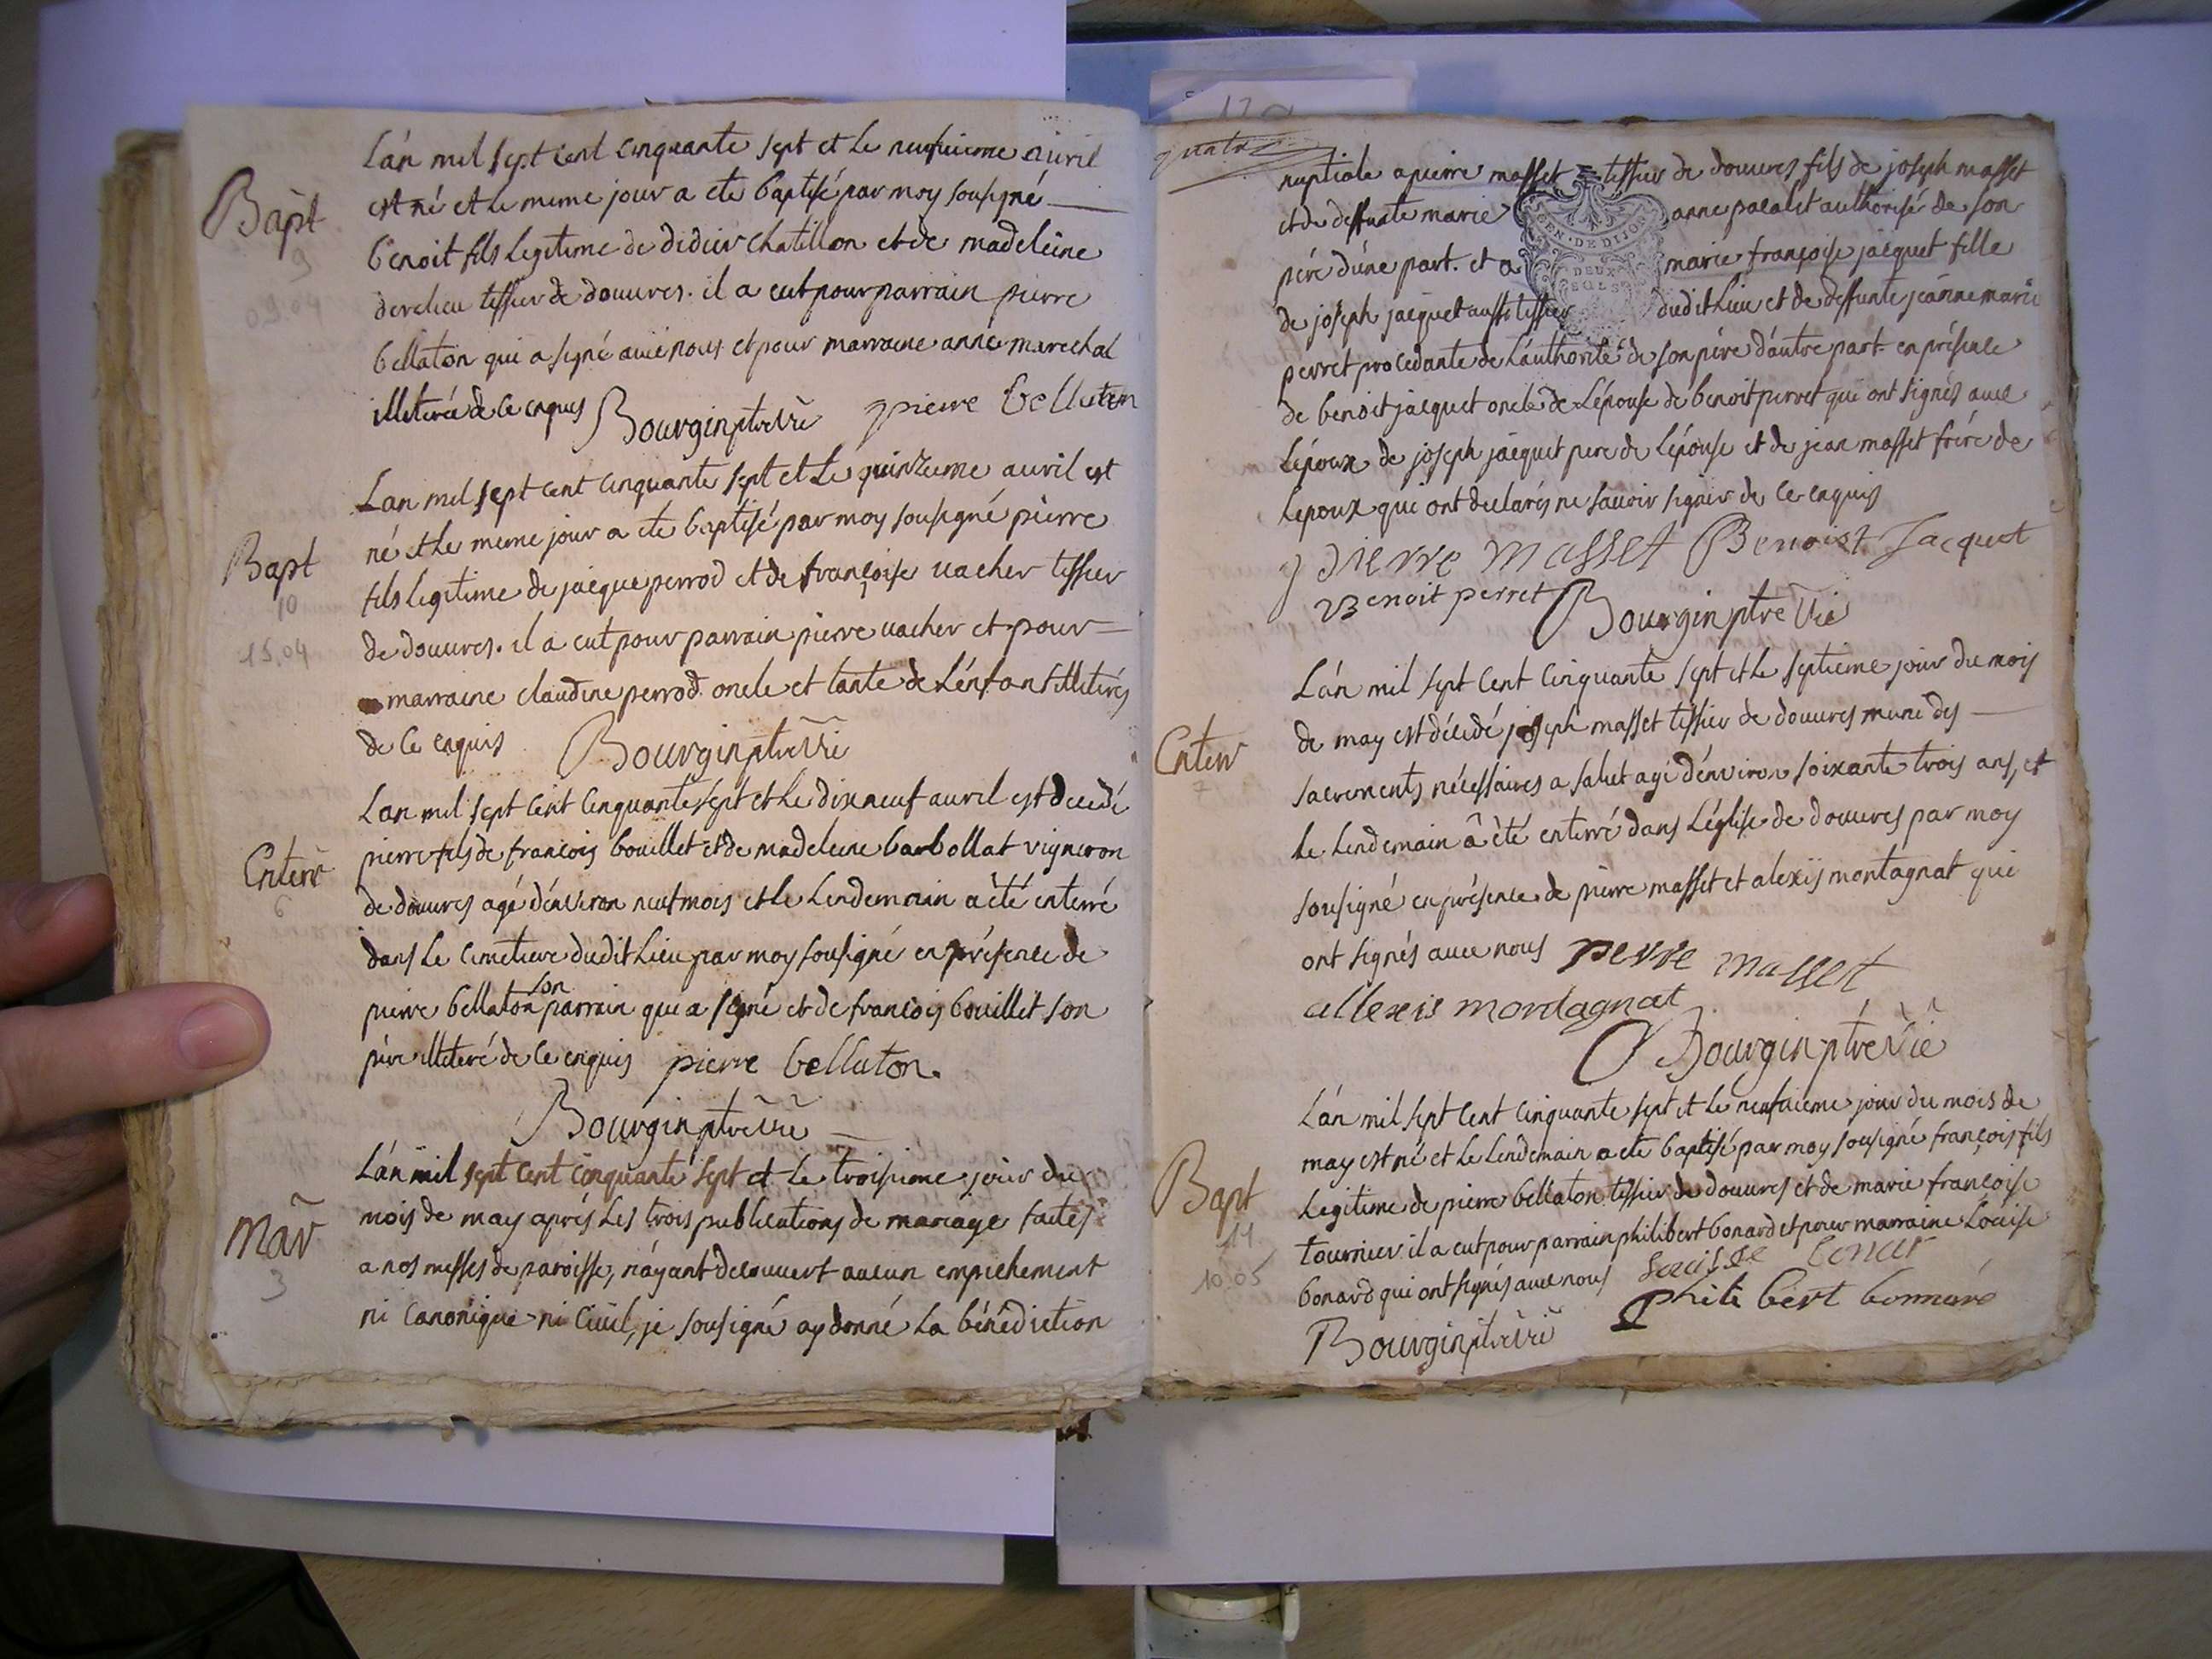 Bapt
9
09.04
Lán mil sept cent cinquante sept et le neufuieme auril
est né et le meme jour a ete baptisé par moy sousigné
benoit fils legitime de didier chatillon et de madeleine
derelieu tissier de douures. il a eut pour parrain pierre
bellaton qui a signé auec nous et pour marraine anne marechal
illiterée de ce enquis Bourgin ptre vic pierre bellaton
Bapt
10
15.04
Lan mil sept cent cinquante sept et le quinzieme auril est
né et le meme jour a ete baptisé par moy sousigné pierre
fils legitime de jacque perrod et de françoise uacher tissier
de douures. il a eut pour parrain pierre uacher et pour
marraine claudine perrod. oncle et tante de lénfant illiterés
de ce enquis Bourgin ptre vic
Enterr
6
Lan mil sept cent cinquante sept et le dixneuf auril est decedé
pierre fils de françois bouillet et de madeleine barbollat vigneron
de douures agé dénviron neuf mois et le lendemain a été enterré
dans le cimetiere dudit lieu par moy sousigné en présence de
pierre bellaton son parrain qui a signé et de françois bouillet son
père illiteré de ce enquis pierre bellaton.
Bourgin ptre vic
Mar
3
Lán mil sept cent cinquante sept et le troisieme jour du
mois de may aprés les trois publications de mariage faites
a nos messes de paroisse, náyant decouuert aucun empechement
ni canonique ni ciuil, je sousigné ay donné la bénédiction
quatre
nuptiale a pierre masset tissier de douures fils de joseph masset
et de deffunte marie anne pacalet authorisé de son
père dúne part. et a marie françoise jacquet fille
de joseph jacquet aussi tissier dudit lieu et de deffunte jeanne marie
GEN. DE DIJON
DEUX
SOLS
perret procedante de láuthorité de son père dáutre part. en présence
de benoit jacquet oncle de lépouse de benoit perret qui ont signés auec
lépoux de joseph jacquet pere de lépouse et de jean masset frére de
lepoux qui ont declarés ne sauoir signer de ce enquis
pierre masset Benoist Jacquet
Benoit perret Bourgin ptre vic
Enterr
7
Lán mil sept cent cinquante sept et le septieme jour du mois
de may est décédé joseph masset tissier de douures muni des
sacrements nécessaires a salut agé dénviron soixante trois ans, et
le lendemain a été enterré dans léglise de douures par moy
sousigné en présence de pierre masset et alexis montagnat qui
ont signés auec nous pierre masset
allexis mordagnat
Bourgin ptre vic
Bapt
11
10.05
Lán mil sept cent cinquante sept et le neufuieme jour du mois de
may est né et le lendemain a ete baptisé par moy sousigné françois fils
legitime de pierre bellaton tissier de douures et de marie françoise
tournier il a eut pour parrain philibert bonard et pour marraine loüise
bonard qui ont signés auec nous Louisse bonar
phili bert bonnard
Bourgin ptre vic